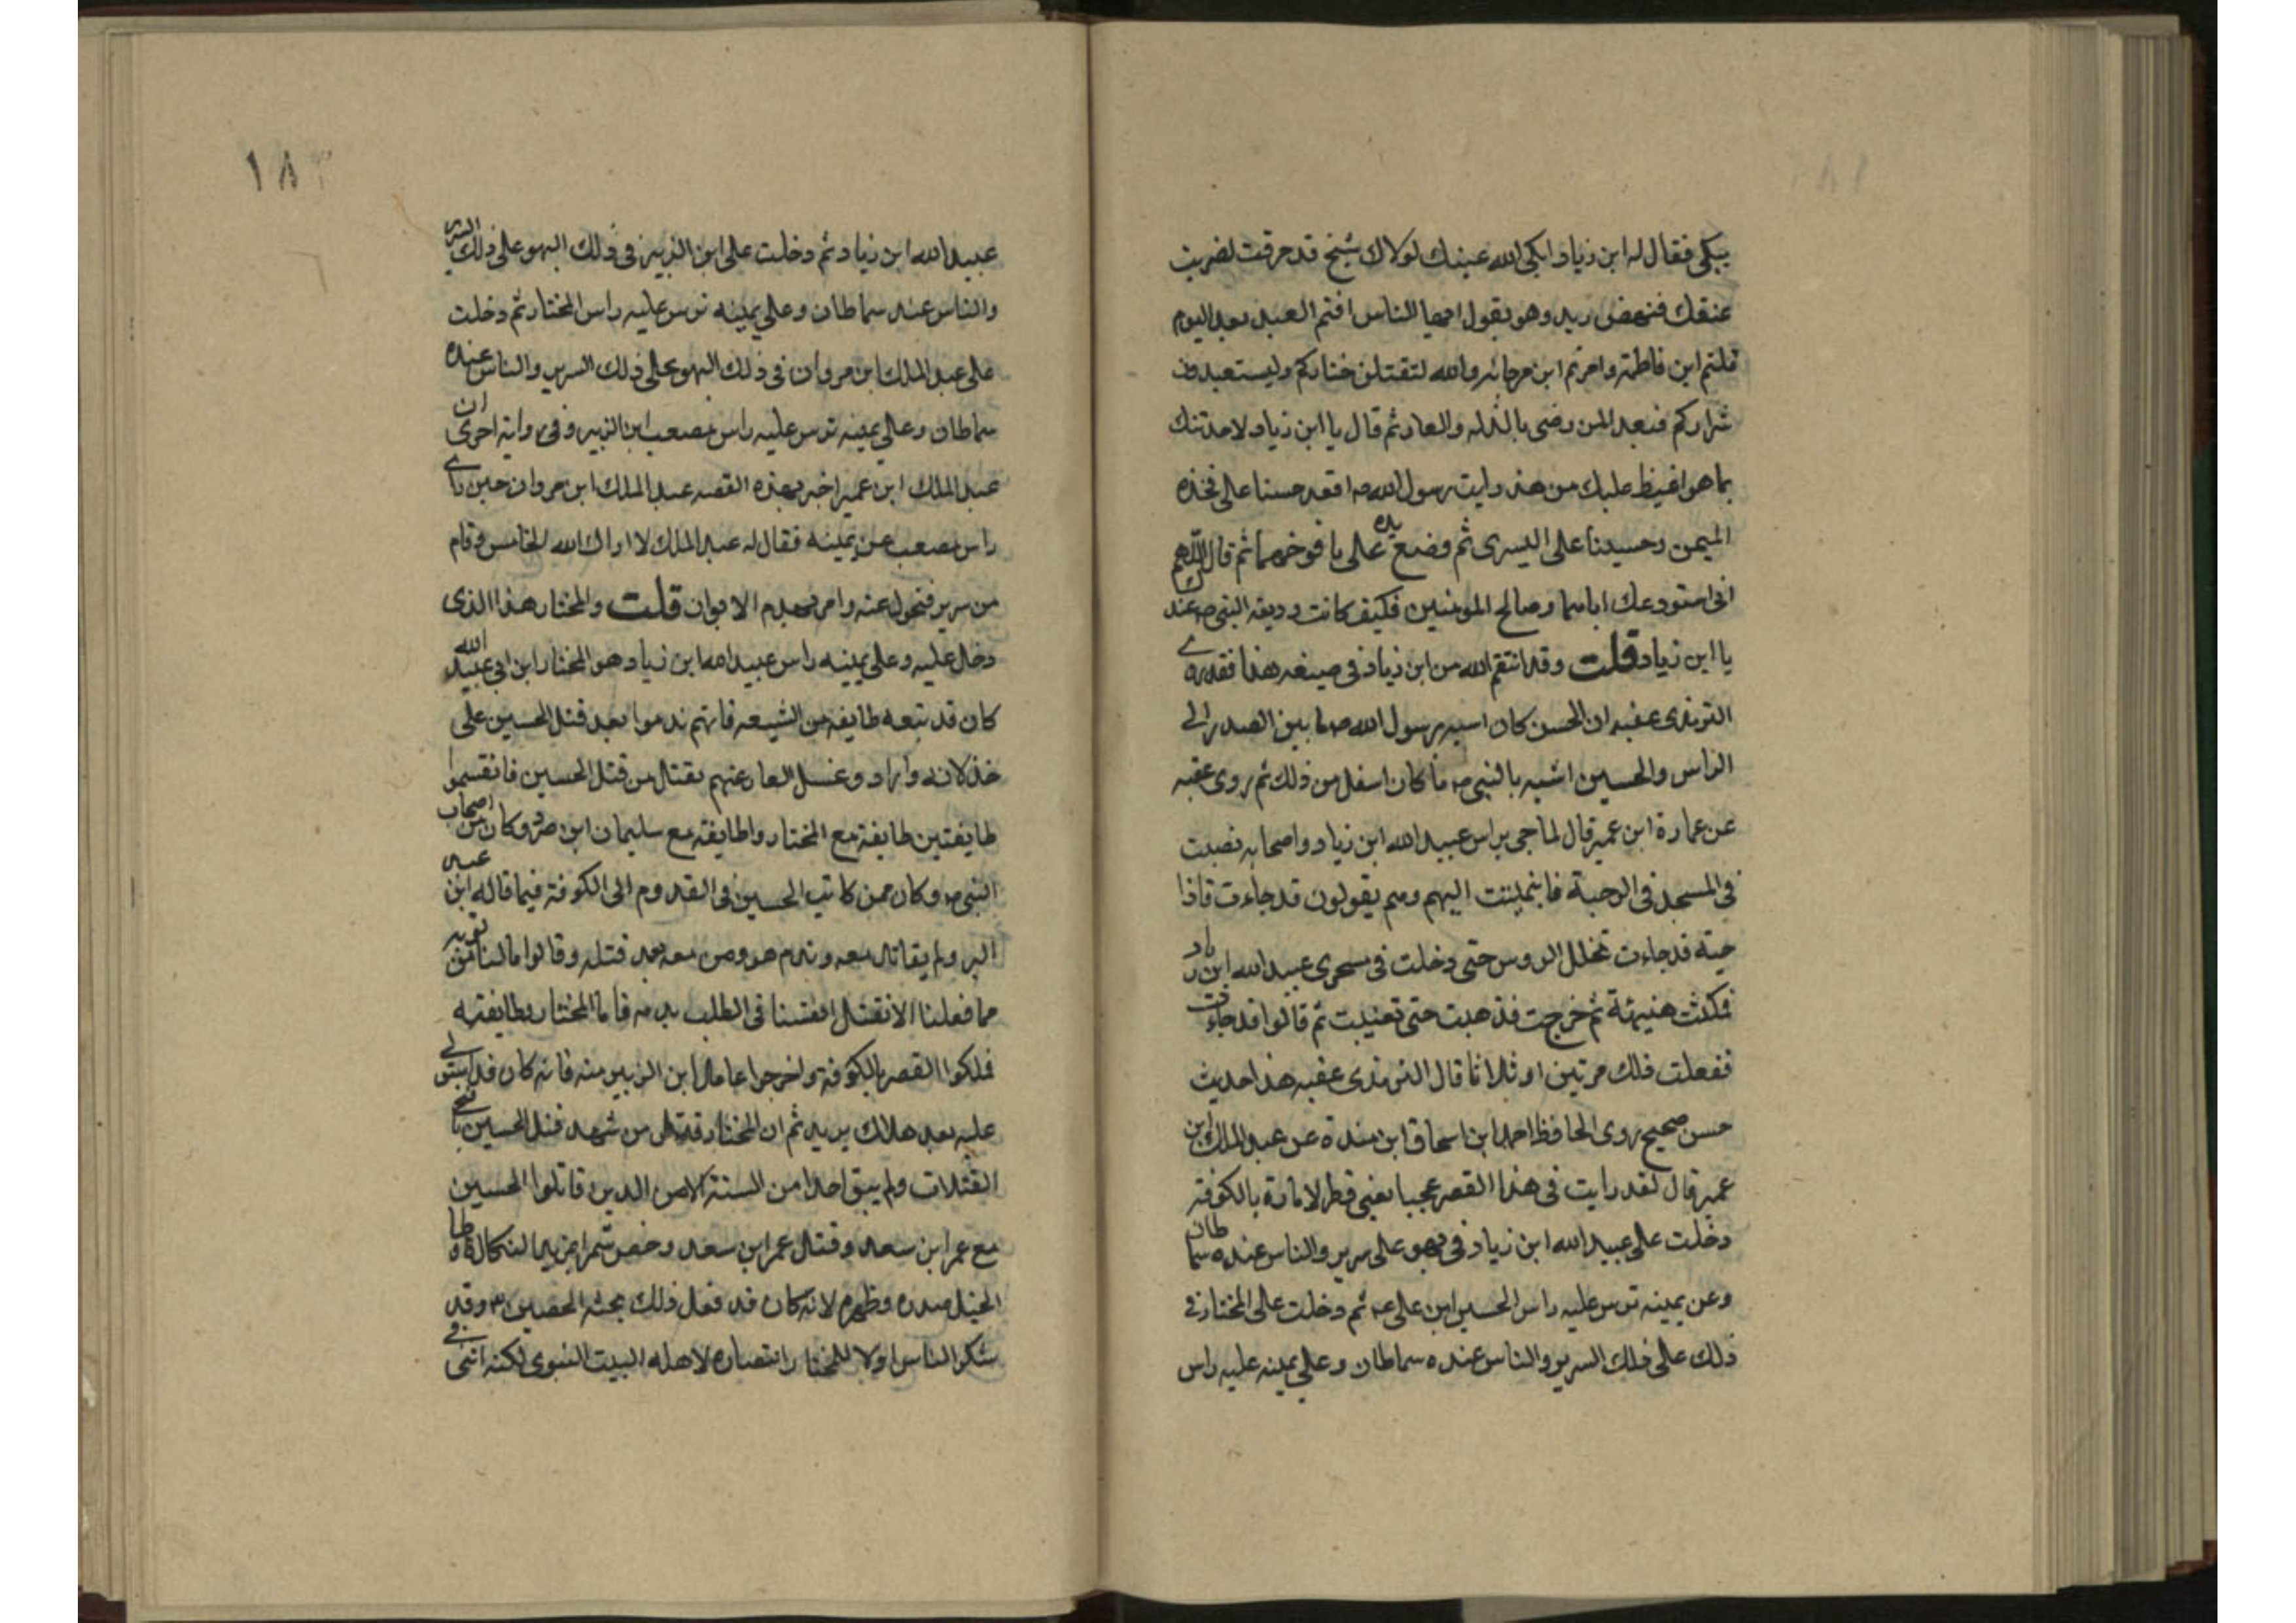 يبكي فقال له ابن زياد ابكى الله عينك لولا انك شيخ قد حرقت لضربت
عنقك فنهض زيد وهو يقول ايها الناس انتم العبيد بعد اليوم
قتلتم ابن فاطمة وامرتم ابن مرجانه والله لتقتلن خياركم وليستعبدون
شراركم فبعد المن رضى بالذله والعار ثم قال يا ابن زياد لاحدثنك
بما هو اغيظ عليك من هذه رايت رسول الله ص اقعد حسنا على فخذه
اليمن وحسينا على اليسرى ثم وضع يده على يافوخهما ثم قال اللهم
انى استودعك اياهما وصالح المومنين فكيف كانت وديعه النبى ص عندك
يا ابن زياد قلت وقد انتقم الله من ابن زياد فى صيغه هذا فقد روى
الترمذى عقبه ان الحسن كان اشبه برسول الله ص ما بين الصدر الى
الراس والحسين اشبه بالنبى ص ما كان اسفل من ذلك ثم روى عقبه
عن عمارة ابن عمير قال لما جى براس عبيد الله ابن زياد واصحابه نصبت
فى المسجد فى الرحبة فانتهيت اليهم وهم يقولون قد جاءت فاذا
حية قد جاءت تخلل الروس حتى دخلت فى منخرى عبيد الله ابن زياد
فمكثت هنيهئة ثم خرجت فذهبت حتى تغيبت ثم قالوا قد جاءت
ففعلت ذلك مرتين او ثلاثا قال الترمذى عقبه هذا حديث
حسن صحيح روى الحافظ احمد ابن اسحاق ابن مندة عن عبد الملك ابن
عمير قال لقد رايت فى هذا القصر عجبا يعنى قصر الامارة بالكوفة
دخلت على عبيد الله ابن زياد فى بهو على سرير والناس عنده سماطان
وعن يمينه ترس عليه راس الحسين ابن على ع ثم دخلت على المختار فى
ذلك على ذلك السرير والناس عنده سماطان وعلى يمينه عليه راس
عبيد الله ابن زياد ثم دخلت على ابن الزبير فى ذلك البهو على ذلك السرير
والناس عنده سماطان وعلى يمينه ترس عليه راس المختار ثم دخلت
على عبد الملك ابن مروان فى ذلك البهو على ذلك السرير والناس عنده
سماطان وعلى يمينه ترس عليه راس مصعب ابن الزبير وفى رواية اخرى ان
عبد الملك ابن عمير اخبر بهذه القصه عبد الملك ابن مروان حين راى
راس مصعب عن يمينه فقال له عبد الملك لا اراك الله الخامس وقام
من سرير فتحول عنه وامر بهدم الايوان قلت والمختار هذا الذى
دخل عليه وعلى يمينه راس عبيد الله ابن زياد هو المختار ابن ابى عبيد الله
كان قد تبعه طايفه من الشيعه فانهم ندموا بعد قتل الحسين على
خذلانه وارادو غسل العار عنهم بقتال من قتل الحسين فانقسموا
طايفتين طايفة مع المختار واطايفة مع سليمان ابن صرد وكان من اصحاب
النبى ص وكان ممن كاتب الحسين فى القدوم الى الكوفة فيما قاله ابن عبد
البر ولم يقاتل معه وندم هو ومن معه بعد قتله وقالوا ما لنا من توبه
مما فعلنا الا نقتل انفسنا فى الطلب بدمه فاما المختار وطايفته
فملكوا القصر بالكوفة واخرجوا عامل ابن الزبير منه فانه كان قد استولى
عليه بعد هلاك يزيد ثم ان المختار قتل من شهد قتل الحسين باقبح
القتلات ولم يبق احدا من الستة الاف الذين قاتلوا الحسين
مع عمر ابن سعد وقتل عمر ابن سعد وخص شمرا بمزيد النكالة واوطا
الخيل صدره وظهره لانه كان قد فعل ذلك بجثه الحسين ع وقد
شكر الناس اولا للمختار انتصاره لاهله البيت النبوى لكنه انتى فى
١٨٣